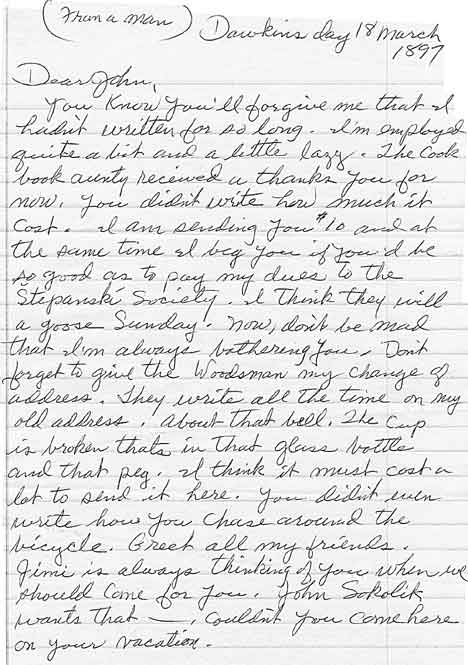 (From a man)
Dawkins day 18 March
1897
Dear John,
You Know You'll forgive me that I
hadn't written for so long. I'm employed
quite a bit and a little lazy. The Cook
book aunty received a thanks you for
now. You didn't write how much it
Cost. I am sending You $10 and at
the same time I beg You if you'd be
so good as to pay my dues to the
Stepanski Society. I think they will
a goose Sunday. Now, don't be mad
that I'm always bothering You. Don't
forget to give the Woodsman my change of
address. They write all the time on my
old address. About that bell. The Cup
is broken thats in that glass bottle
and that peg. I think it must cost a
lot to send it here. You didn't even
write how You Chase around the
bicycle. Greet all my friends.
Jimi is always thinking of You when we
should Come for You. John Sokolik
wants that —, Couldn't You Come here
on your vacation.